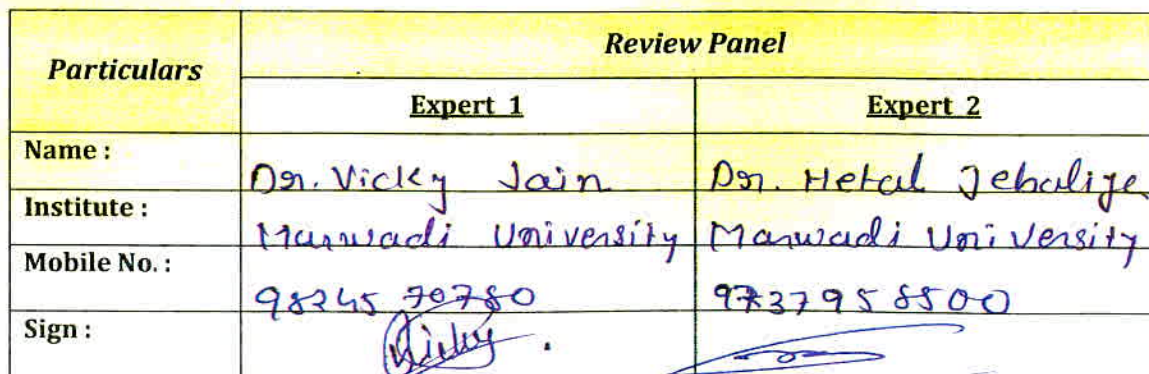 Particulars
Review Panel
Expert 1 Expert 2
Name : Dr. Vicky Jain Dr. Hetal Jebaliye
Institute : Marwadi University Marwadi University
Mobile No. : 98245 70780 97379 58500
Sign : Vicky .